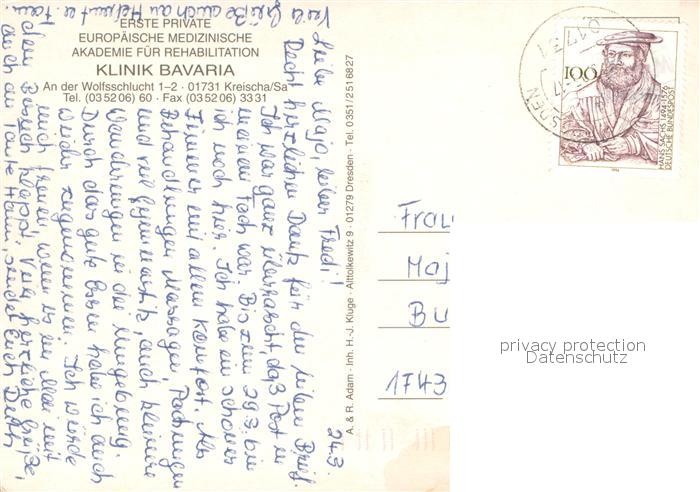 ERSTE PRIVATE
EUROPÄISCHE MEDIZINISCHE
AKADEMIE FÜR REHABILITATION
KLINIK BAVARIA
An der Wolfsschlucht 1–2 · 01731 Kreischa/Sa
Tel. (03 52 06) 60 · Fax (03 52 06) 33 31
24.3.
Liebe Maja, lieber Fredi!
Recht herzlichen Dank für den lieben Brief.
Ich war ganz überrascht, daß Post in
meinem Fach war. Bis zum 29.3. bin
ich noch hier. Ich habe ein schönes
Zimmer mit allem Komfort. Als
Behandlungen Massagen, Packungen
und viel Gymnastik, auch kleinere
Wanderungen in der Umgebung.
Durch das gute Essen habe ich auch
wieder zugenommen. Ich würde
mich freuen, wenn es im Mai mit
dem Besuch klappt. Viele herzliche Grüße,
auch an Tante Hanni, sendet Euch
Viele Grüße auch an Helmut u. Fam.
A. & R. Adam · Inh. H.-J. Kluge · Alttolkewitz 9 · 01279 Dresden · Tel. 0351/2516827
01731
100
HANS SACHS 1494–1576
DEUTSCHE BUNDESPOST
1994
Frau
Maj
Bu
1743
privacy protection
Datenschutz